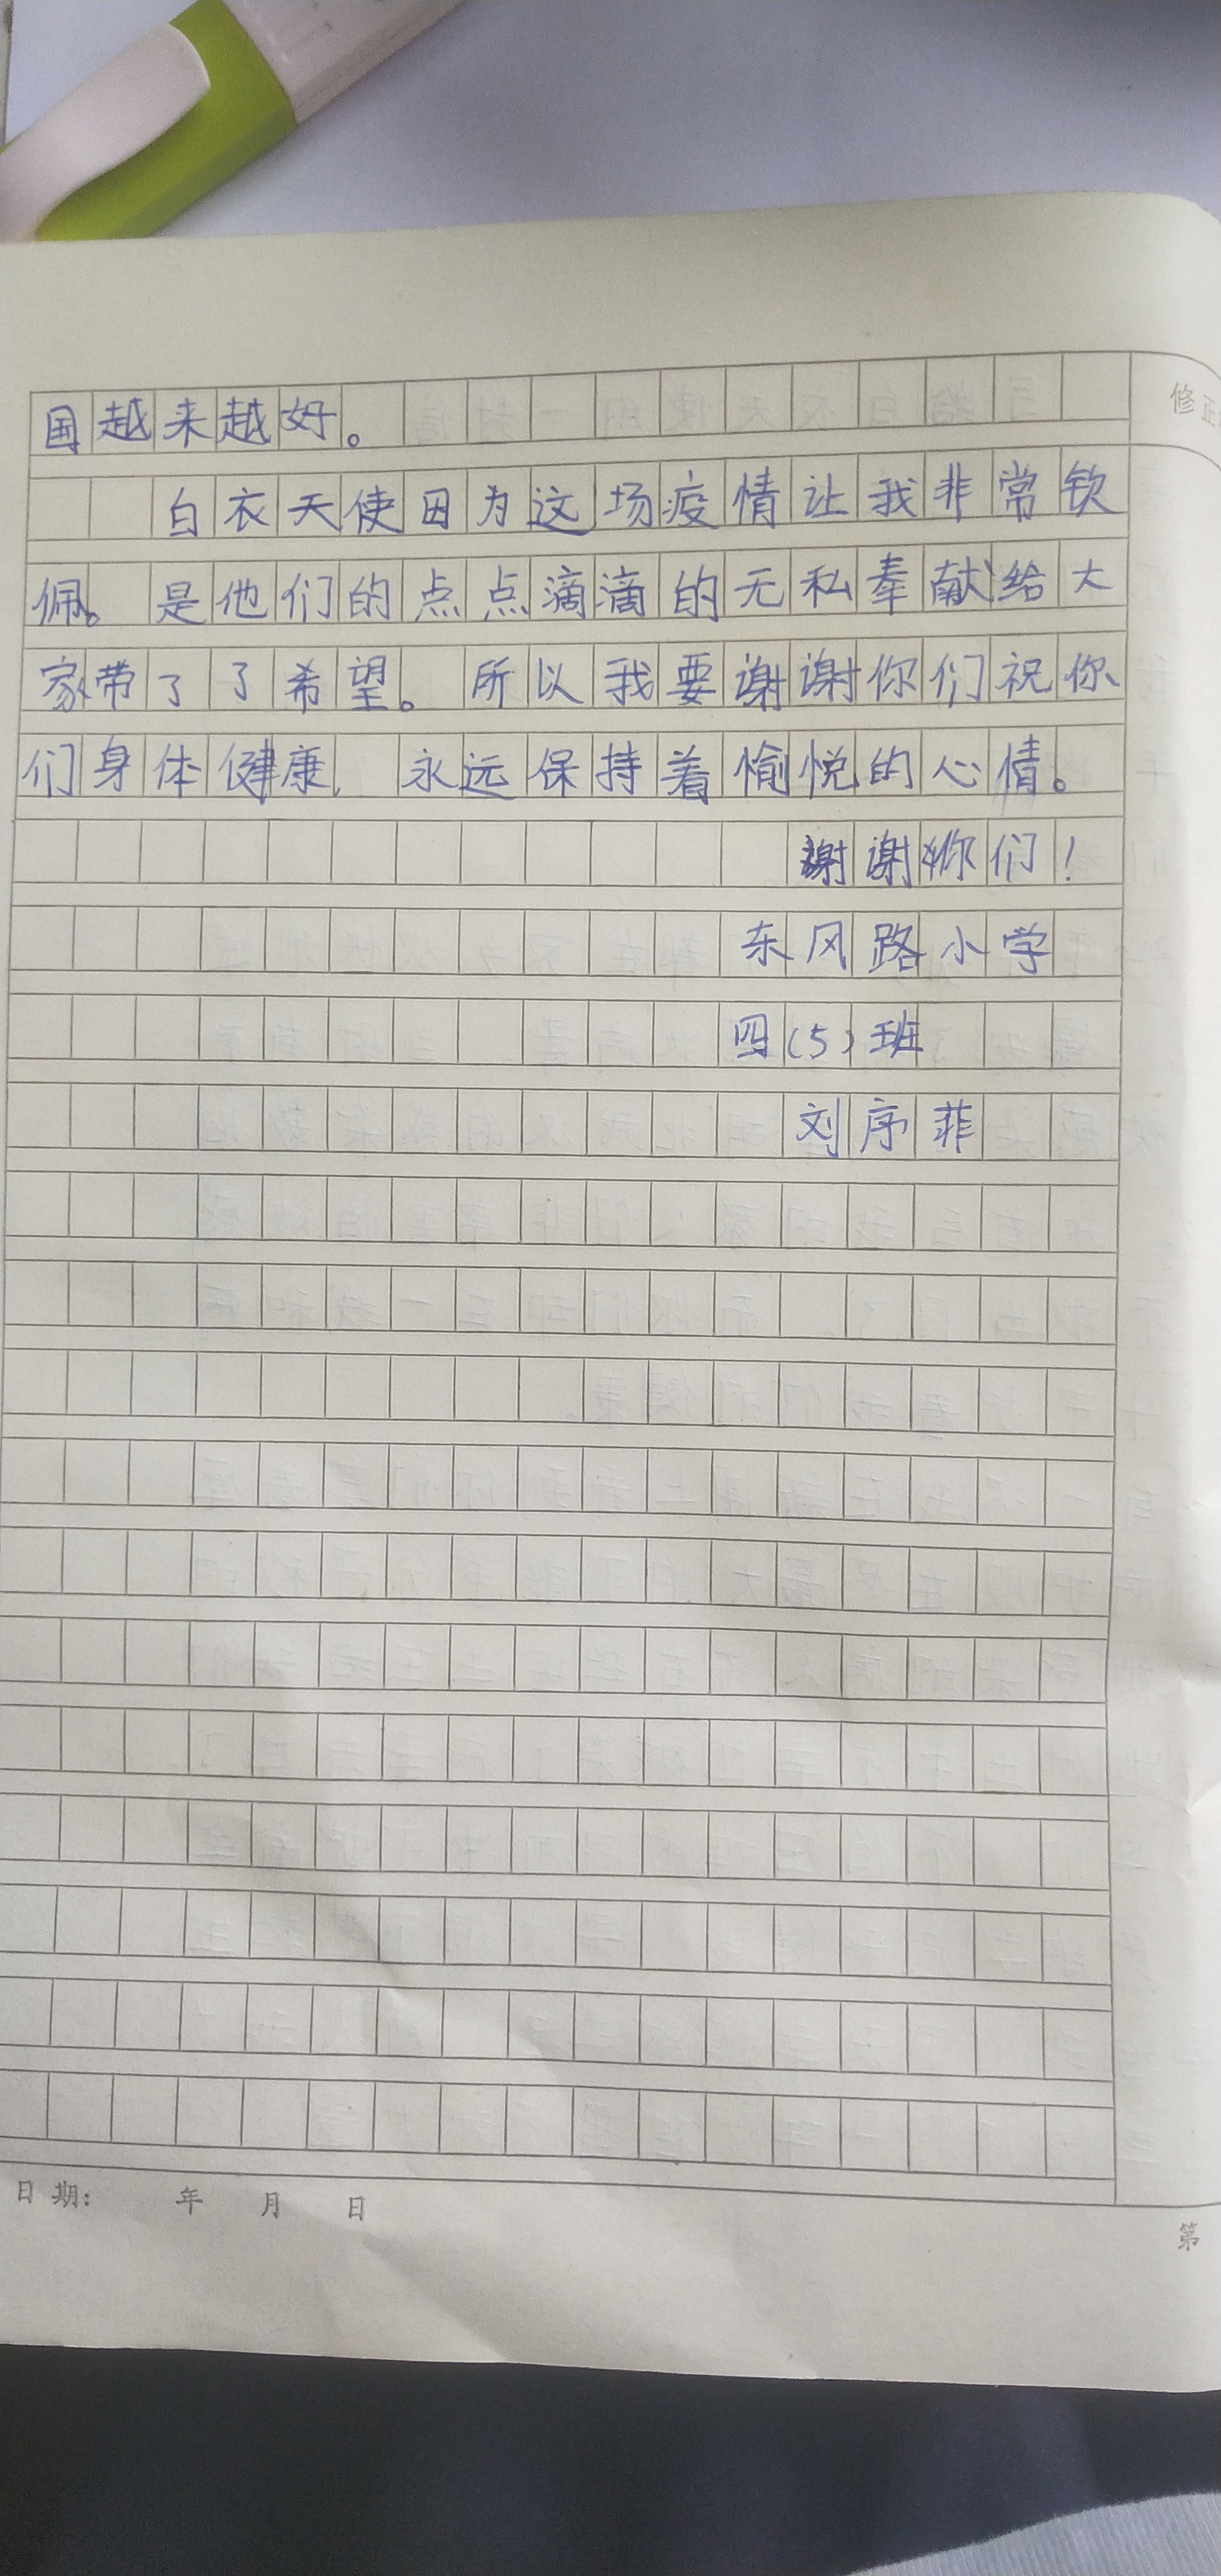 修正
国越来越好。
白衣天使因为这场疫情让我非常钦
佩。是他们的点点滴滴的无私奉献给大
家带了了希望。所以我要谢谢你们祝你
们身体健康, 永远保持着愉悦的心情。
谢谢你们!
东风路小学
四(5)班
刘序菲
日期: 年 月 日
第